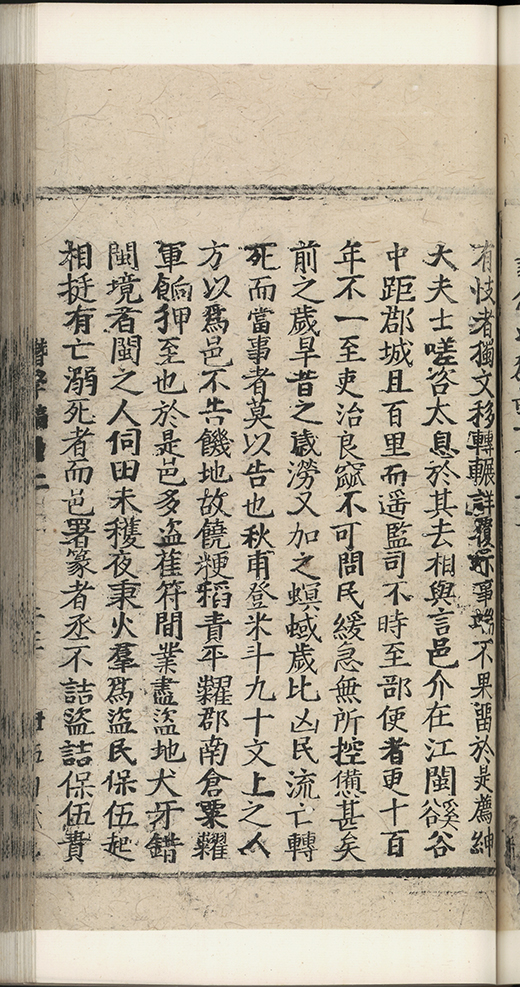 有忮者獨文移轉輾詳覆事不果畱於是薦紳
大夫士嗟咨太息於其去相與言邑介在江閩谿谷
中距郡城且百里而遥監司不時至部使者更十百
年不一至吏治良窳不可問民緩急無所控憊甚矣
前之歲旱昔之歲澇又加之螟蜮歲比凶民流亡轉
死而當事者莫以告也秋甫登米斗九十文上之人
方以爲邑不告饑地故饒粳稻青平糶郡南倉粟糶
軍餉狎至也於是邑多盜萑苻間業盡盜地犬牙錯
閩境者閩之人伺田未穫夜秉火羣爲盜民保伍起
相挺有亡溺死者而邑署篆者丞不詰盜詰保伍責